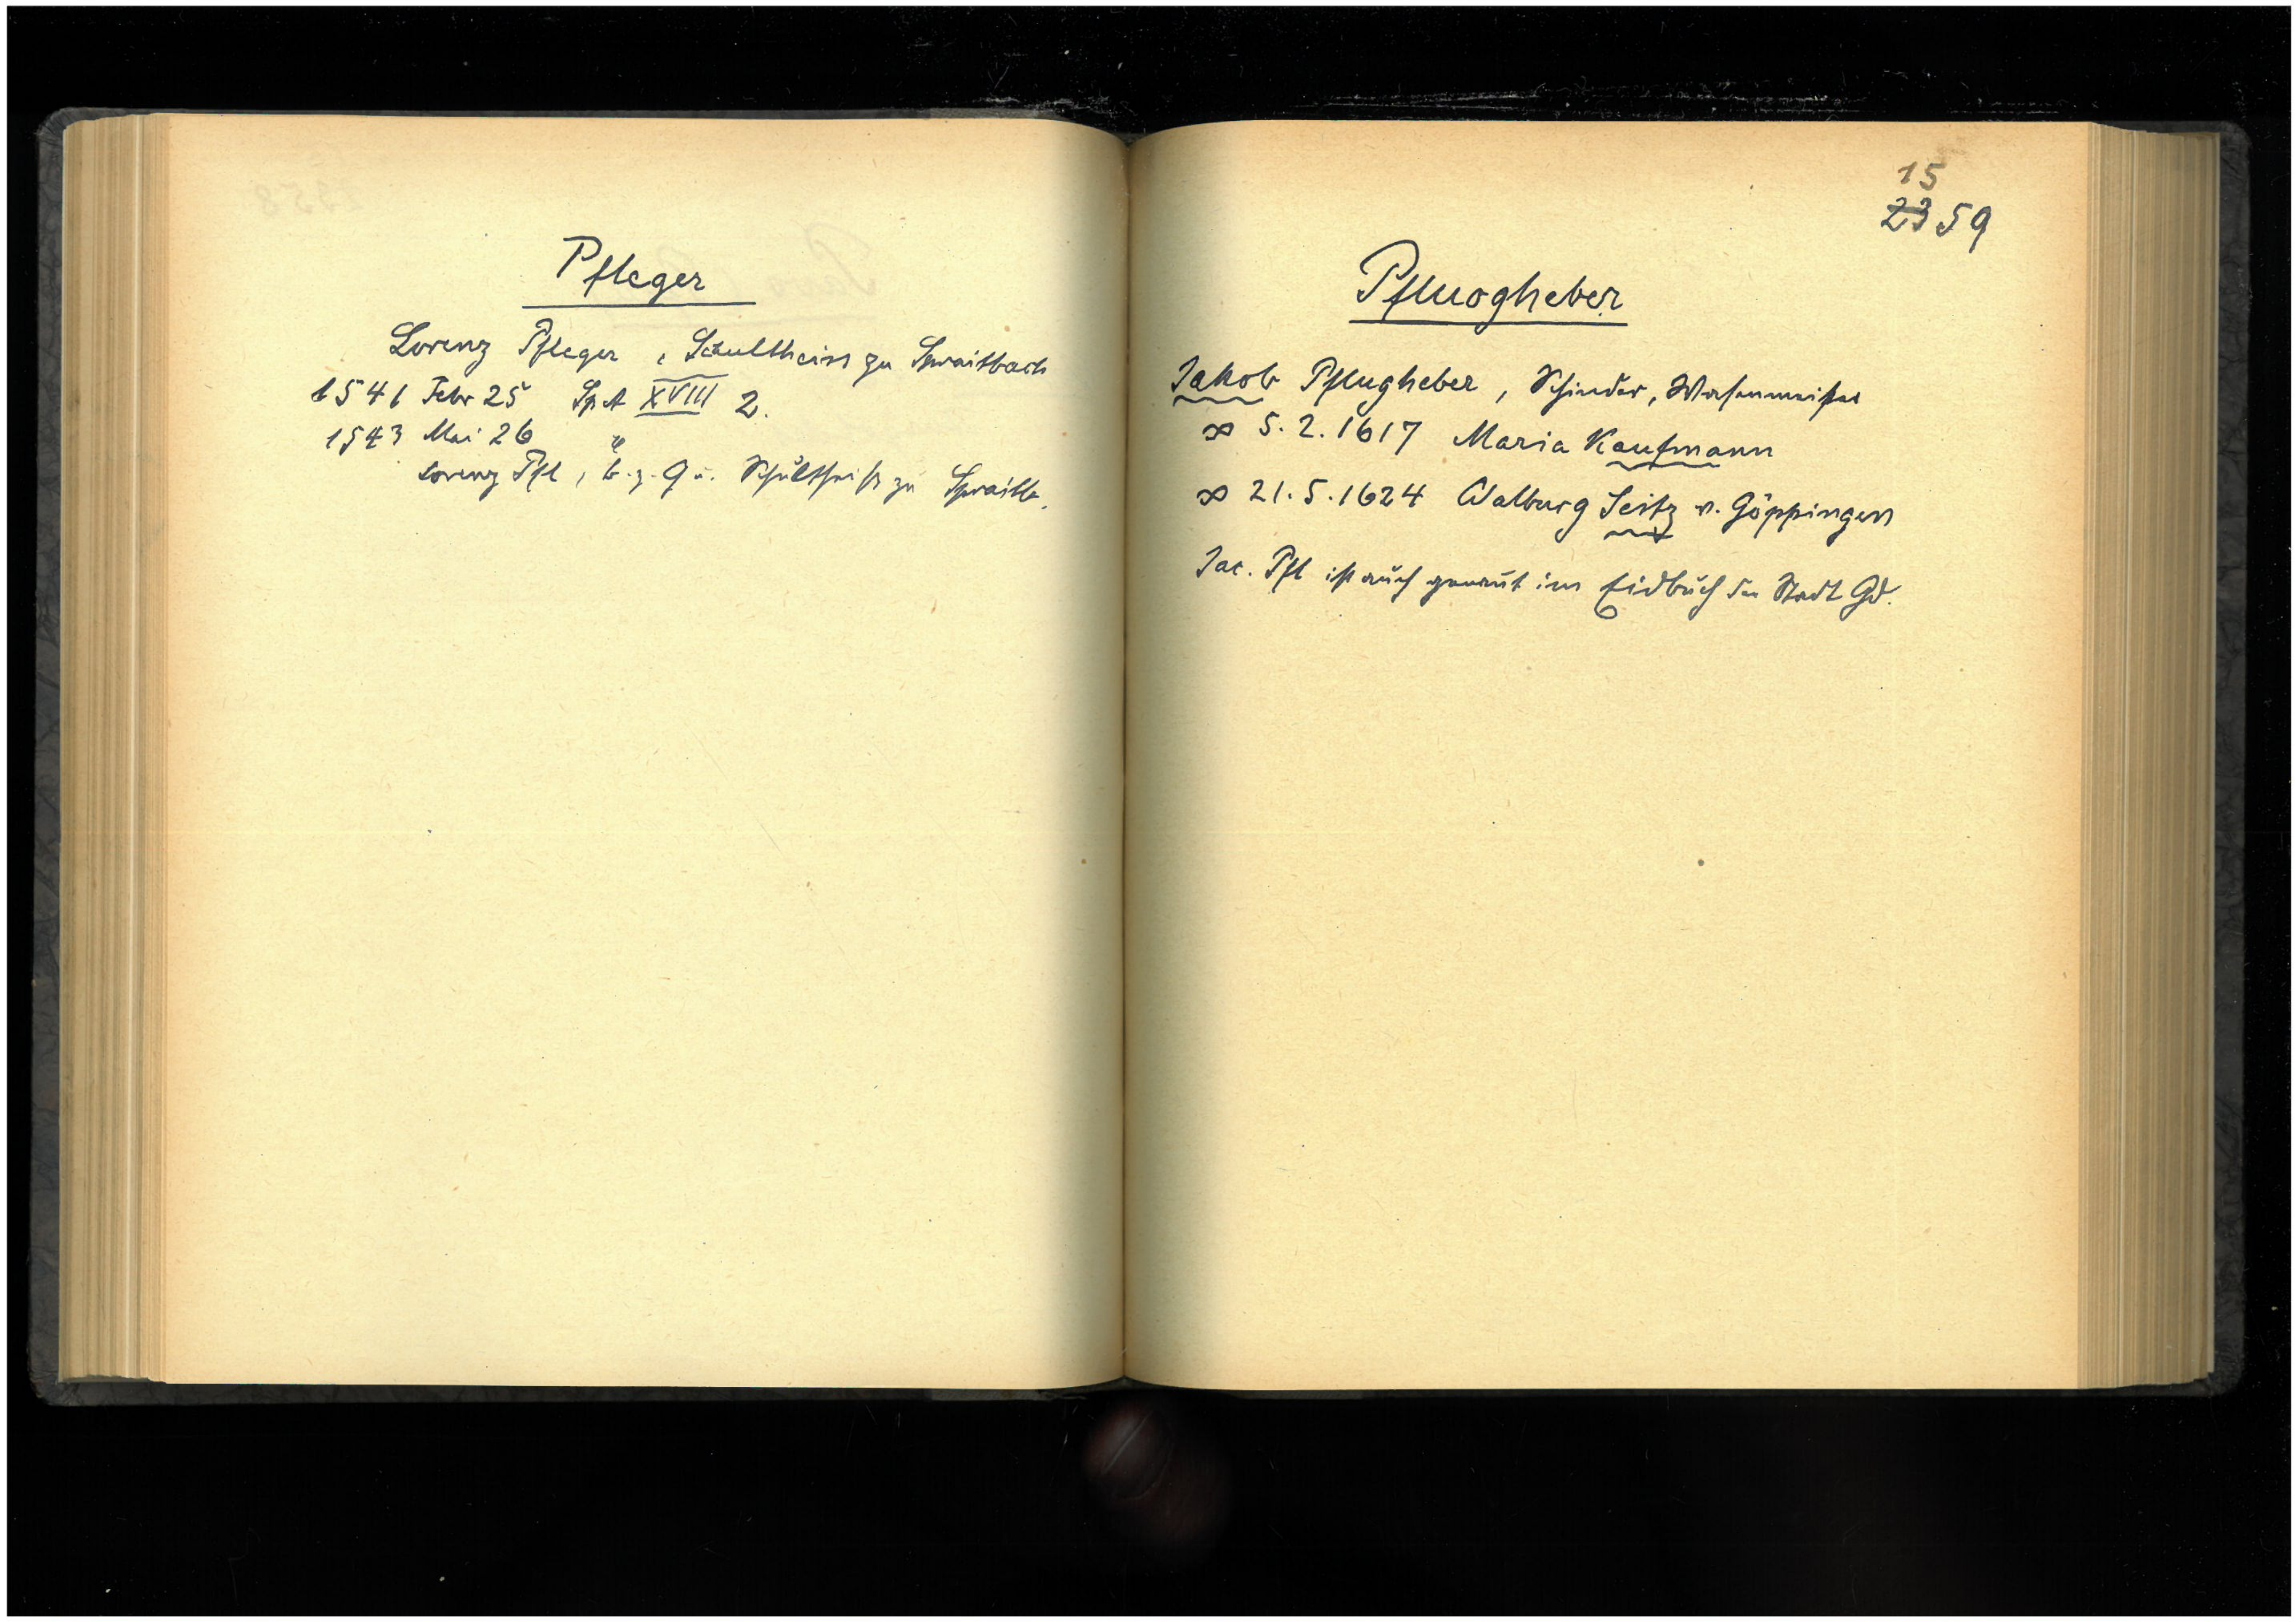 Pfleger
Lorenz Pfleger, Schultheiss zu Spraitbach
1541 Febr 25 Sp A XVIII 2.
1543 Mai 26 "
Lorenz Pfl, b. z. G u. Schultheiß zu Spraitb.
15
2359
Pfluogheber
Jakob Pflugheber, Schinder, Wasenmeister
∞ 5. 2. 1617 Maria Kaufmann
∞ 21. 5. 1624 Walburg Seitz v. Göppingen
Jac. Pfl ist auch genannt im Eidbuch der Stadt Gd.